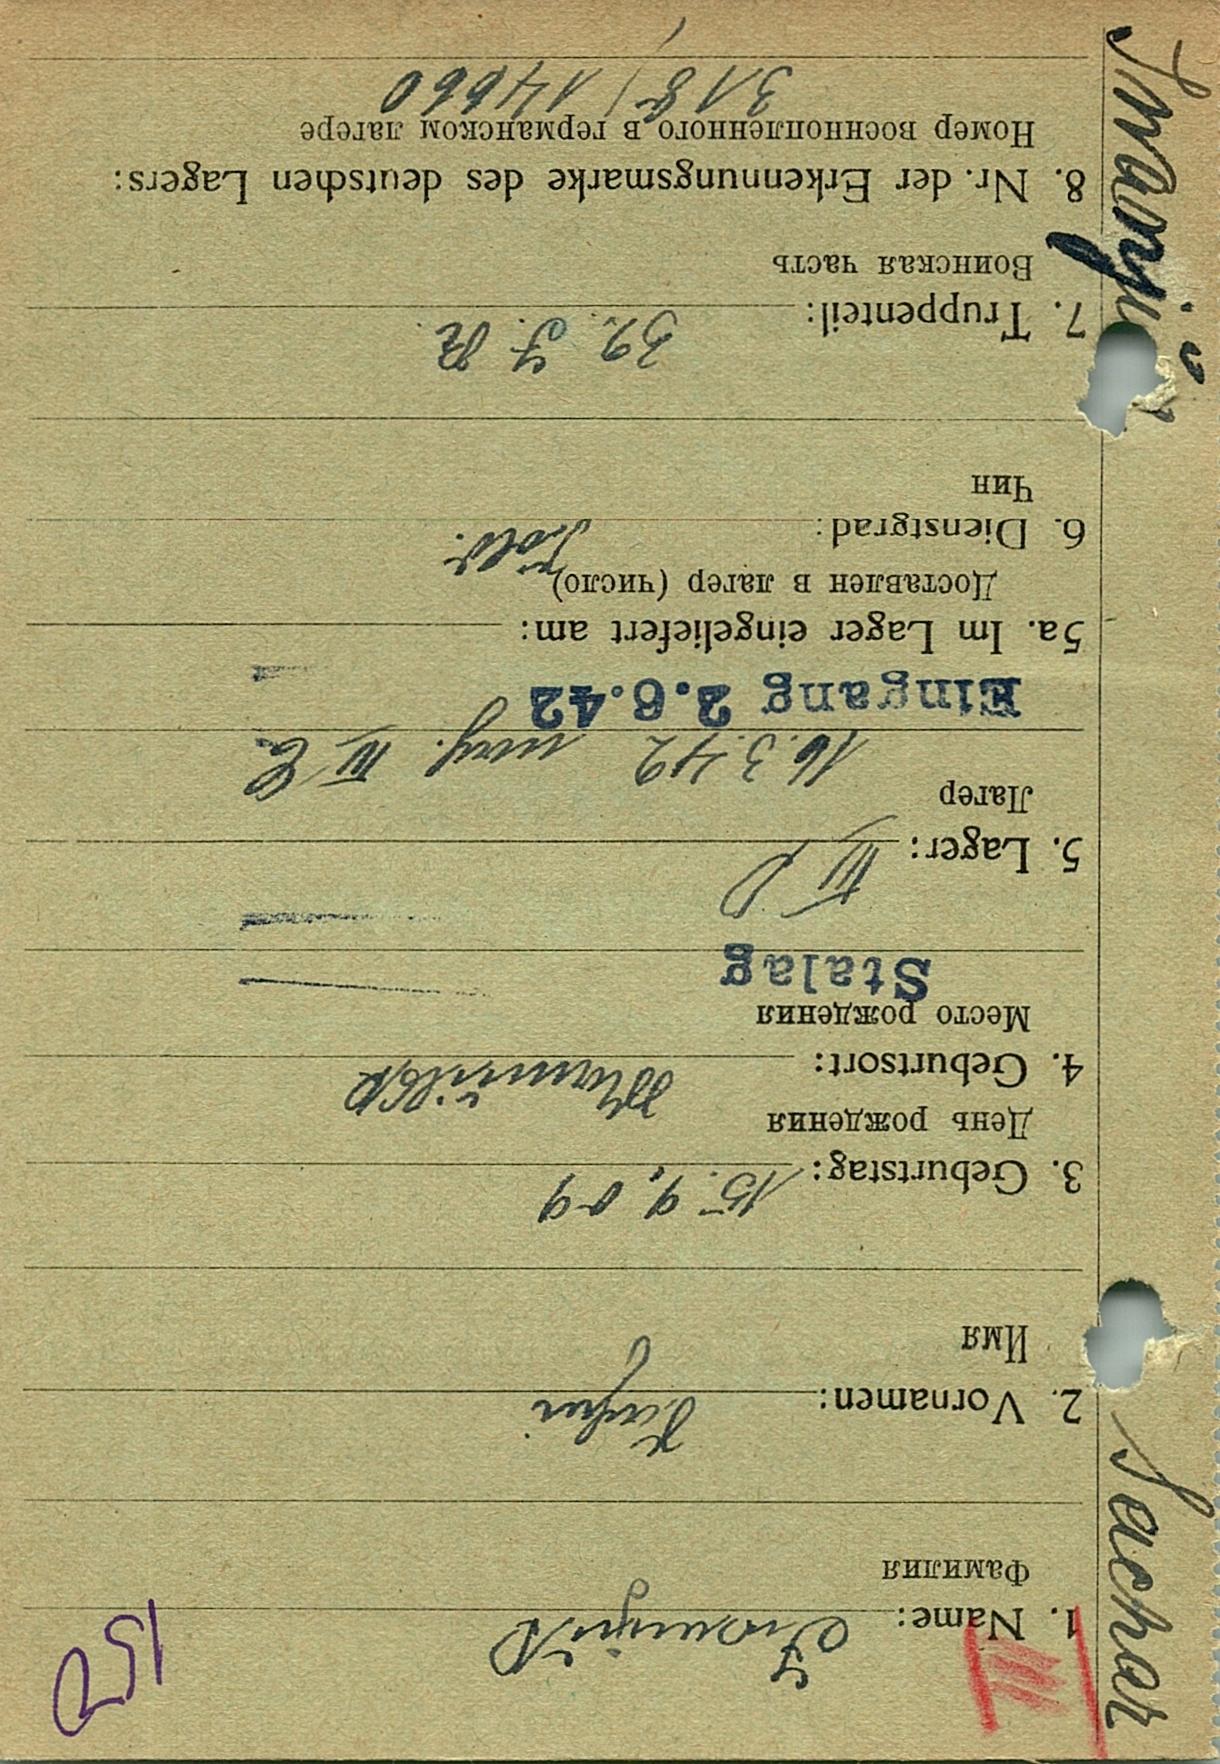 150
III
1. Name: Iwanjuk
Фамилия
2. Vornamen:
Имя
3. Geburtstag: 15.9.09
День рождения
4. Geburtsort:
Место рождения
Stalag
5. Lager: III D
Лагер
16.3.42 III
Eingang 2.6.42
5a. Im Lager eingeliefert am:
Доставлен в лагер (число)
6. Dienstgrad: Sold.
Чин
7. Truppenteil: 39. J. R.
Воинская часть
8. Nr. der Erkennungsmarke des deutschen Lagers:
Номер военнопленного в германском лагере
318/14660
Sachar